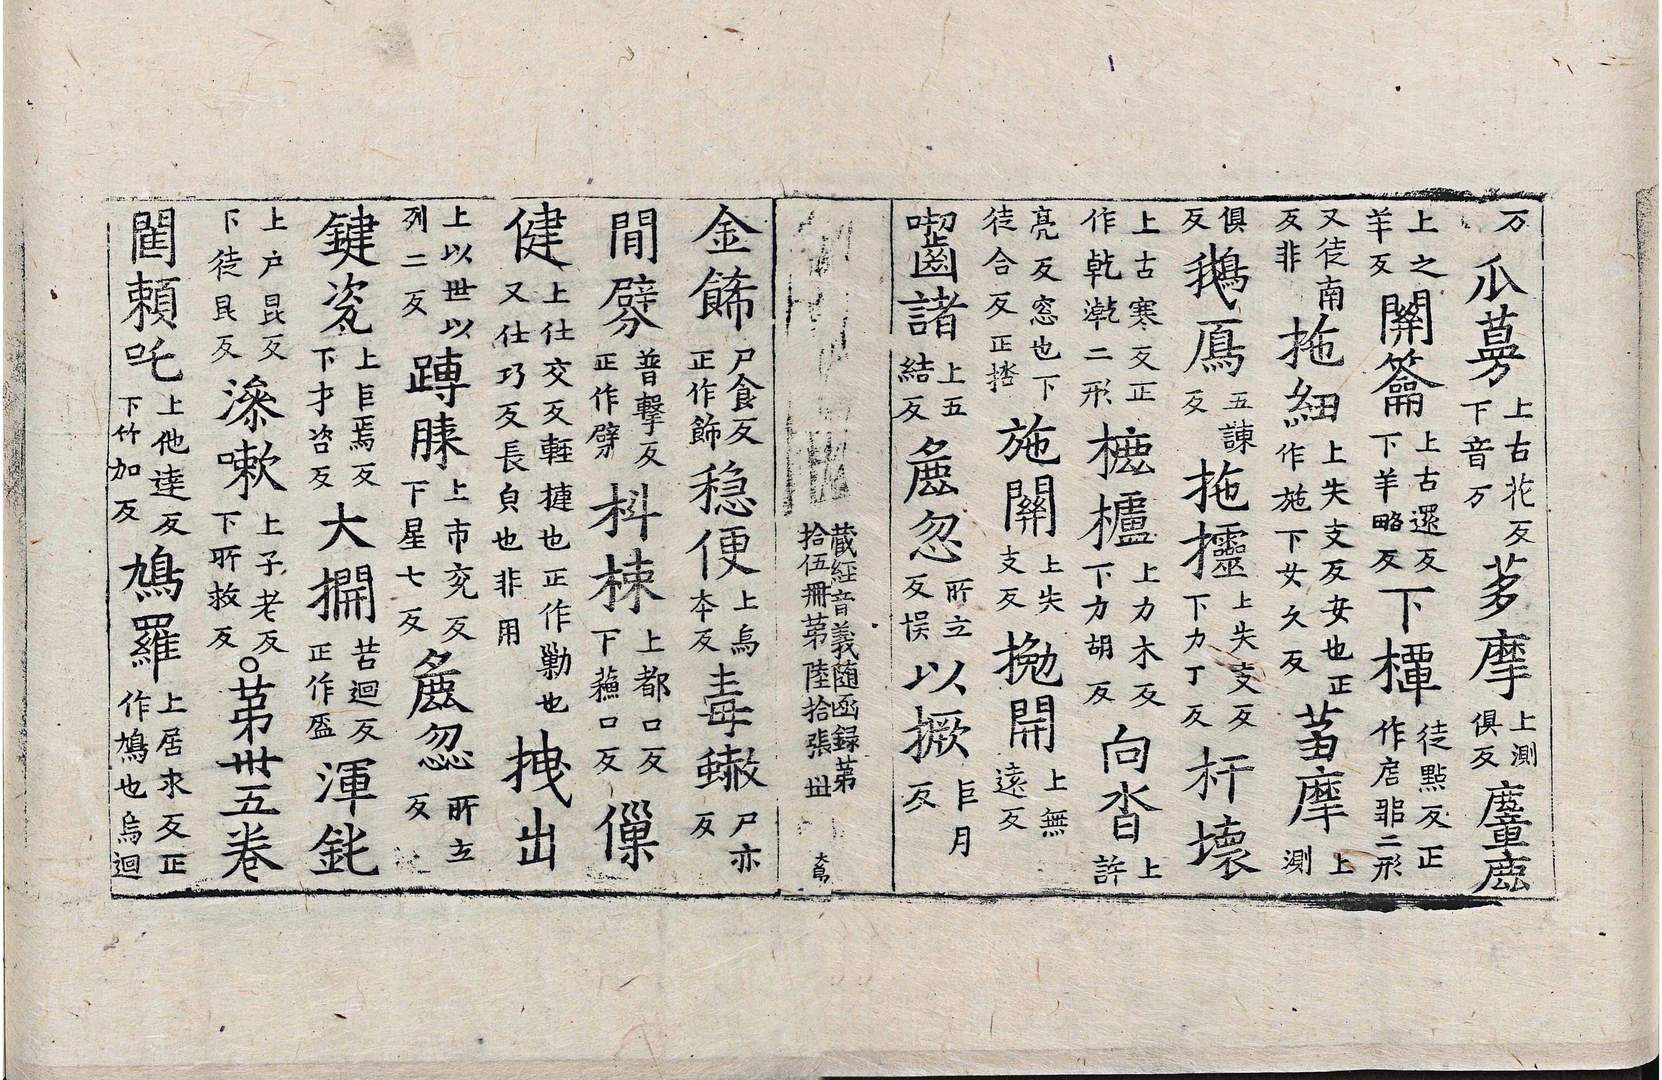 万瓜蔢上古花反下音万茤摩上測俱反麞鹿
上之羊反關籥上古還反下羊略反下橝徒點反正作㢆非二形
又徒南反非拖紐上失支反安也正作施下女久反蒭摩上測
俱反鵝鴈五諫反拖㩕上失支反下力丁反杆壞
上古寒反正作乾漧二形樚櫨上力木反下力胡反向沓上許
亮反窓也下徒合反正㳫施關上失支反㧥開上無遠反
囓齒諸上五結反麁忽所立反悮以撅巨月反
藏經音義随函録苐拾伍冊苐陸拾張丗
金餙尸食反正作飾穏便上烏本反毒𧓍尸亦反
閒劈普擊反正作劈枓棟上都口反下蘓口反僳
健上仕交反輕㨗也正作勦也又仕巧反長皃也非用拽出
上以世以列二反蹲𦞅上市兖反下星七反麁忽所立反
鍵瓷上巨焉反下才咨反大㨟苦迴反正作盔渾𨥨
上户昆反下徒昆反㵸嗽上子老反下所救反○苐丗五卷
閣頼吒上他達反下竹加反鳩羅上居求反正作鳩也烏迴